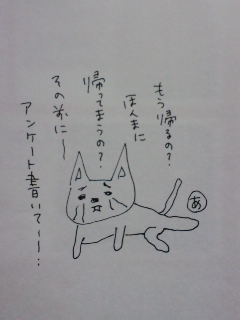 もう帰るの?
ほんまに
帰ってまうの?
その前に〜
アンケート書いて〜〜:
あ